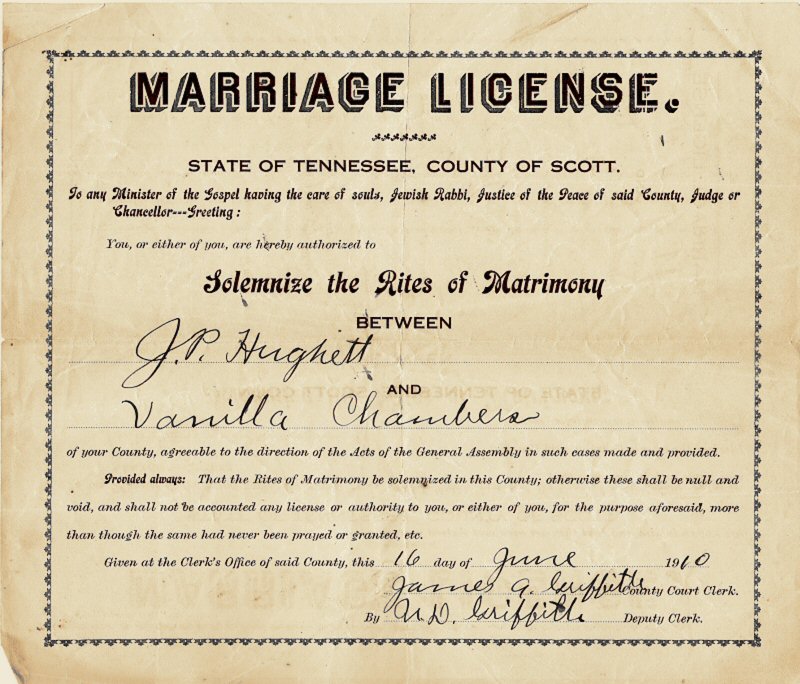 MARRIAGE LICENSE.
STATE OF TENNESSEE, COUNTY OF SCOTT.
To any Minister of the Gospel having the care of souls, Jewish Rabbi, Justice of the Peace of said County, Judge or
Chancellor---Greeting:
You, or either of you, are hereby authorized to
Solemnize the Rites of Matrimony
BETWEEN
J.P. Hughett
AND
Vanilla Chambers
of your County, agreeable to the direction of the Acts of the General Assembly in such cases made and provided.
Provided always: That the Rites of Matrimony be solemnized in this County; otherwise these shall be null and
void, and shall not be accounted any license or authority to you, or either of you, for the purpose aforesaid, more
than though the same had never been prayed or granted, etc.
Given at the Clerk's Office of said County, this 16 day of June 1910
James A. Griffith County Court Clerk.
By Griffith Deputy Clerk.